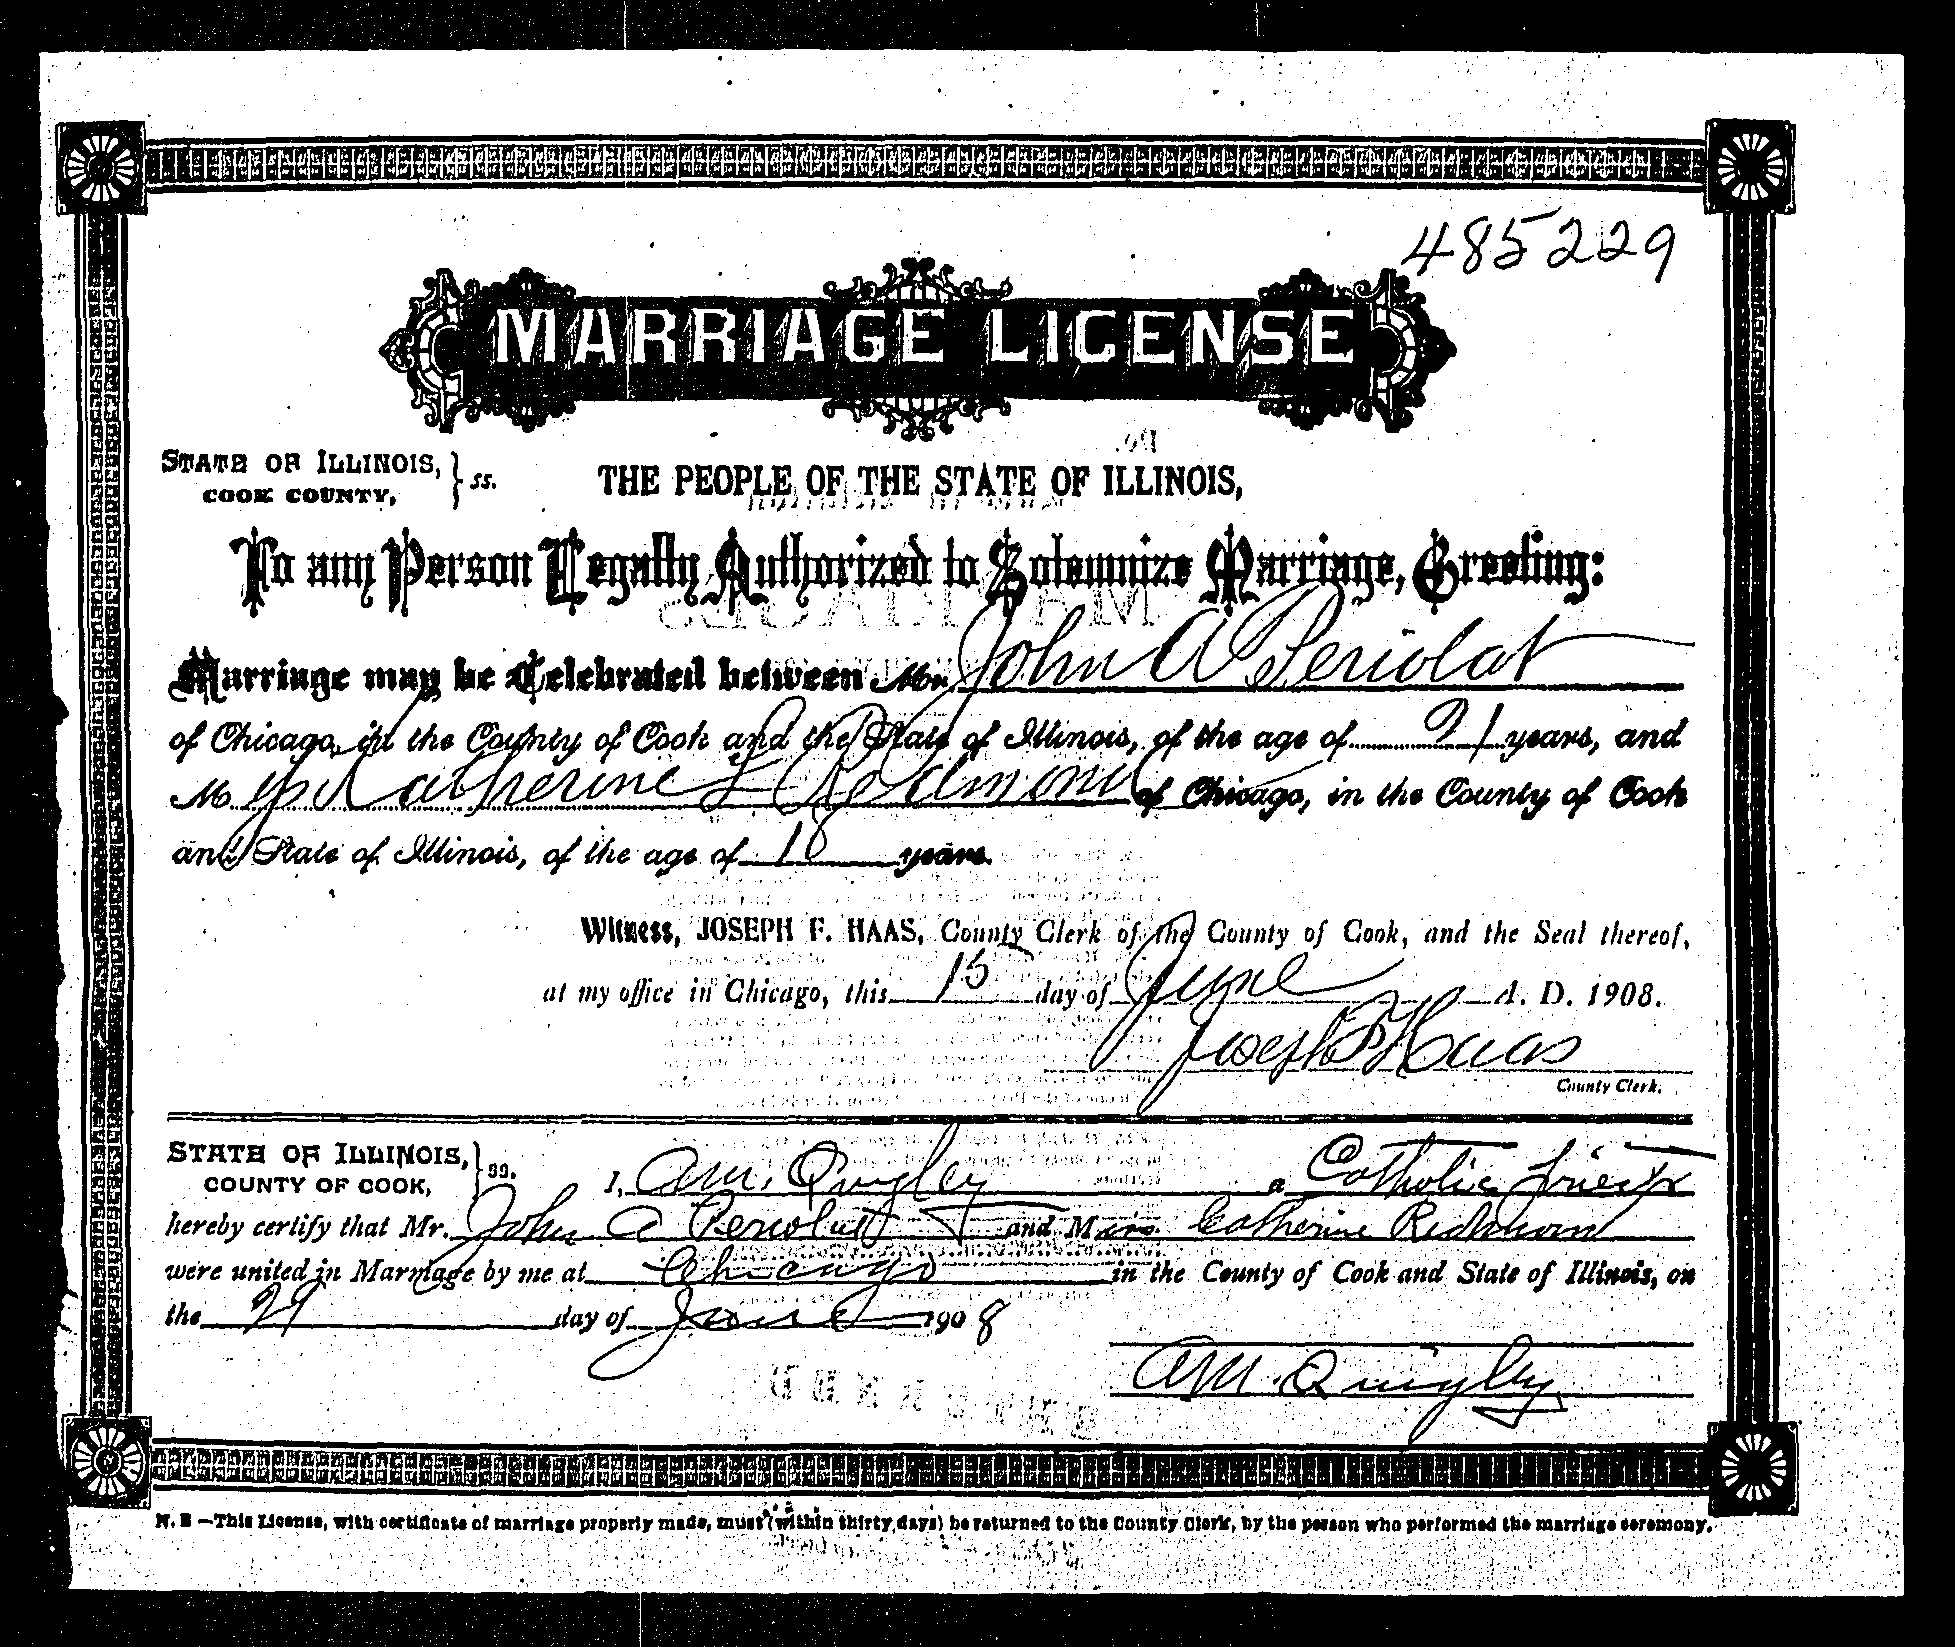 485229
MARRIAGE LICENSE
STATE OF ILLINOIS, } ss.
COOK COUNTY,
THE PEOPLE OF THE STATE OF ILLINOIS,
To any Person Legally Authorized to Solemnize Marriage, Greeting:
Marriage may be Celebrated between Mr. John A Periolat
of Chicago, in the County of Cook and the State of Illinois, of the age of 21 years, and
Miss Katherine L Redmond of Chicago, in the County of Cook
and State of Illinois, of the age of 18 years.
Witness, JOSEPH F. HAAS, County Clerk of the County of Cook, and the Seal thereof,
at my office in Chicago, this 15 day of June A. D. 1908.
Joseph F Haas
County Clerk.
STATE OF ILLINOIS, } ss.
COUNTY OF COOK,
I, AM. Quigley a Catholic Priest
hereby certify that Mr. John A Periolat and Miss Catherine Redmond
were united in Marriage by me at Chicago in the County of Cook and State of Illinois, on
the 24 day of June 1908
AM. Quigley
N. B —This License, with certificate of marriage properly made, must (within thirty days) be returned to the County Clerk, by the person who performed the marriage ceremony.